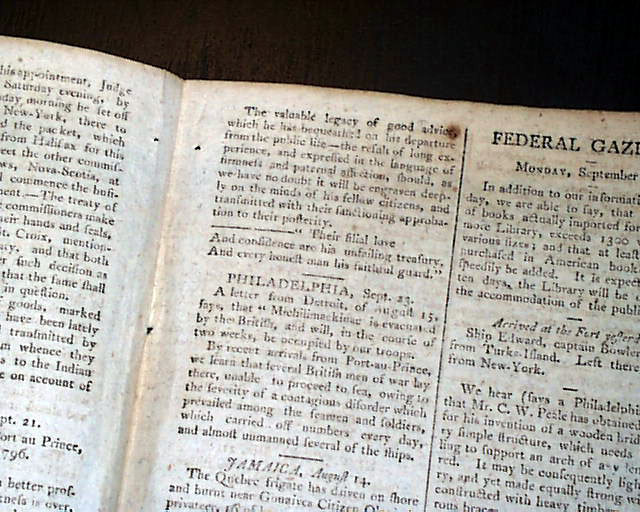 his appointment, Judge
Saturday evening, by
day morning he set off
New-York, there to
the packet, which
from Halifax for this
eet the other commis-
ws, Nova-Scotia, at
l commence the busi-
ent.—The treaty of
commissioners make
eir hands and seals,
t. Croix, mention-
acy, and that both
er such decision as
that the same shall
in question.
goods, marked
have been lately
transmitted by
m whence they
s to the Indian
e on account of
pt. 21.
ort au Prince,
796.
better prof-
ness is over,
The valuable legacy of good advice,
which he has bequeathed on his departure
from the public life—the result of long ex-
perience, and expressed in the language of
firmness and paternal affection, should, as
we have no doubt it will be engraven deep-
ly on the minds of his fellow citizens, and
transmitted with their sanctioning approba-
tion to their posterity.
———" Their filial love
And confidence are his unfailing treasury,
And every honest man his faithful guard."
PHILADELPHIA, Sept. 23.
A letter from Detroit, of August 15,
says, that " Michilimackinac is evacuated
by the British, and will, in the course of
two weeks, be occupied by our troops.
By recent arrivals from Port-au-Prince,
we learn that several British men of war lay
there, unable to proceed to sea, owing to
the severity of a contagious disorder which
prevailed among the seamen and soldiers,
which carried off numbers every day,
and almost unmanned several of the ships.
JAMAICA, August 14.
The Quebec frigate has driven on shore
and burnt near Gonaives Citizen
privateer,
FEDERAL GAZ
Monday, September
In addition to our informat
day, we are able to say, that
of books actually imported for
more Library, exceed 1300
various sizes; and that at least
purchased in American book
speedily be added. It is expe
ten days, the Library will be
the accommodation of the publ
Arrived at the Fort yester
Ship Edward, captain Bowle
from Turks-Island. Left there
from New-York.
We hear (says a Philadelph
that Mr. C. W. Peale has obtained
for his invention of a wooden brid
ry simple structure, which needs
ing to support an arch of any
red. It may be consequently ligh
ry, and yet made equally strong w
constructed with heavy timber
rous braces